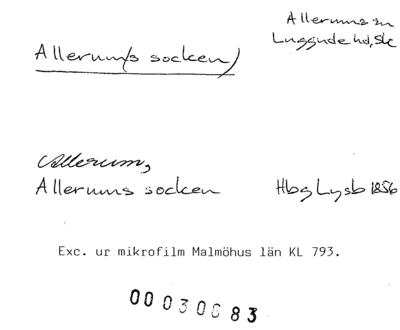 Allerum(s socken)
Allerums sn
Luggude hd, Sk
Allerum,
Allerums socken
Hbg Lysb 1856
Exc. ur mikrofilm Malmöhus län KL 793.
00030683